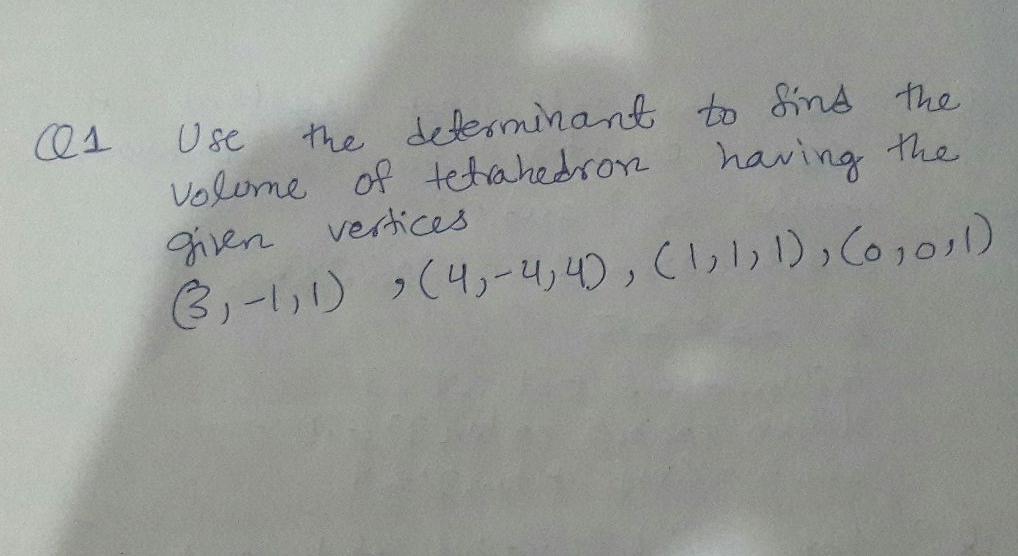 Q1 Use the determinant to find the
volume of tetrahedron having the
given vertices
(3,-1,1) , (4,-4,4) , (1,1,1) , (0,0,1)